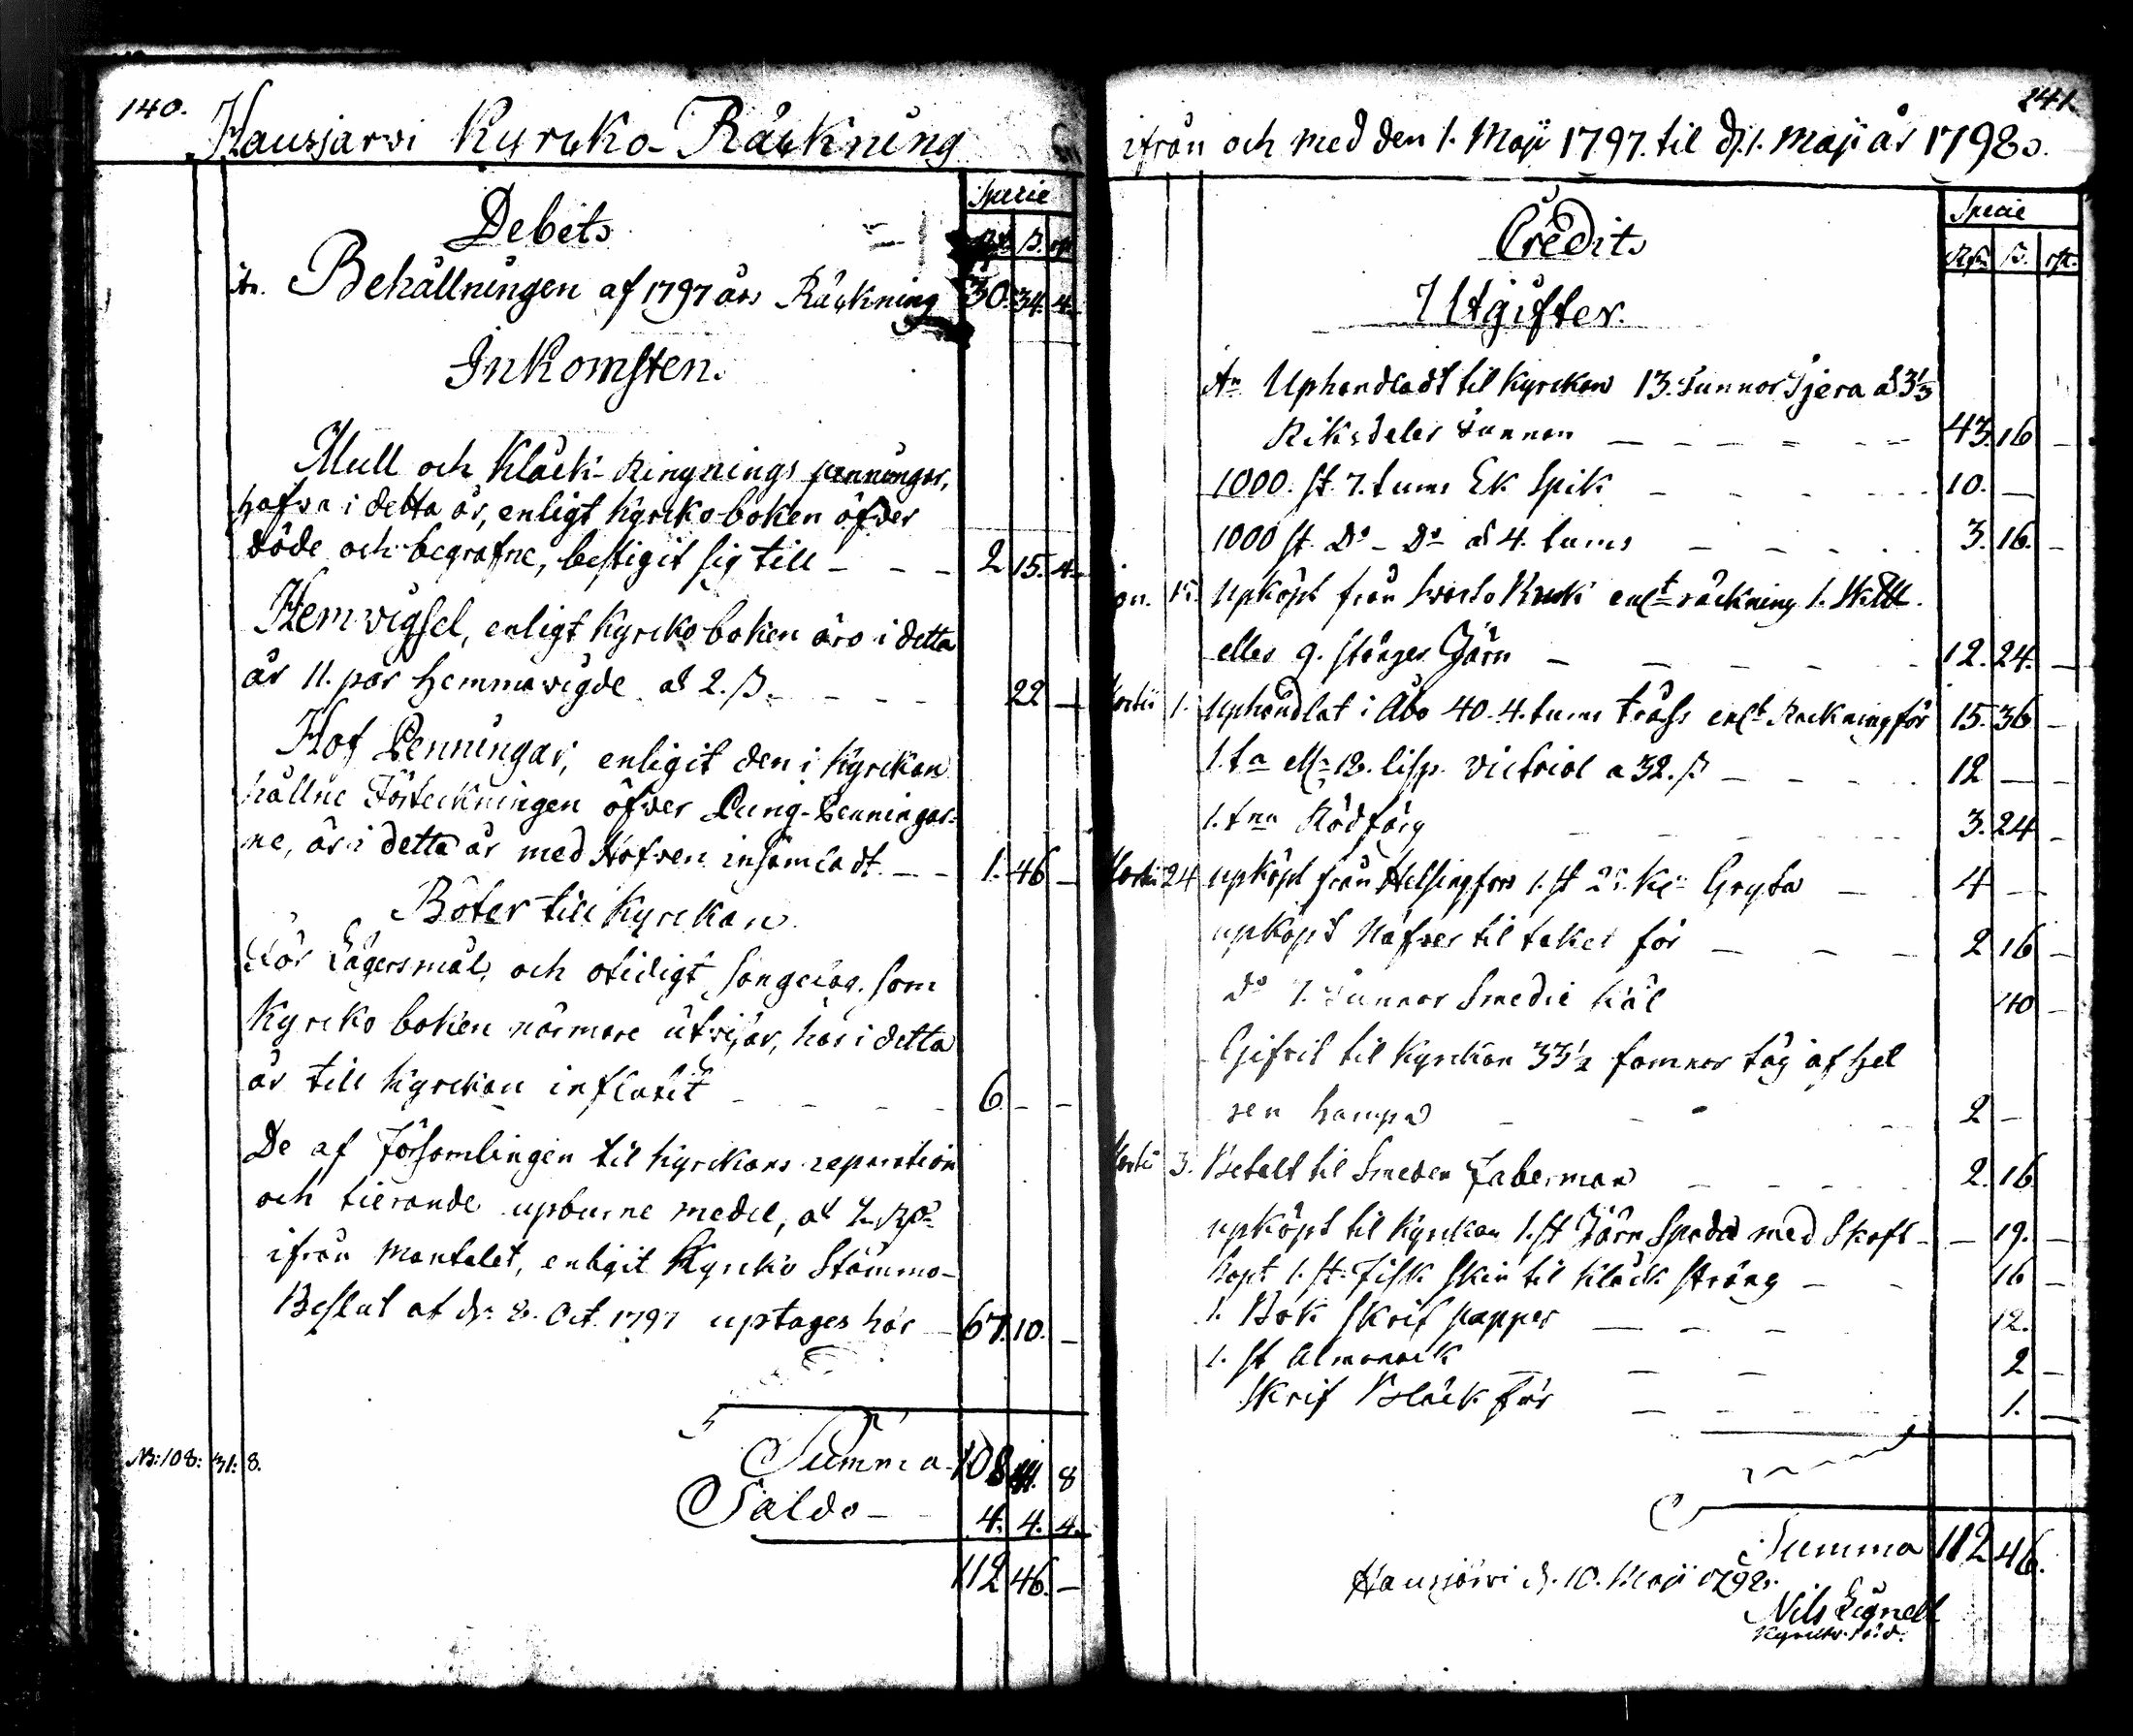 140.
Hausjarvi Kyrcko-Räckning
Debet
Specie
Rd. ß. rst.
An. Behållningen af 1797 års Räckning 30. 34. 4.
Inkomsten.
Mull och Kläck-Ringnings penningar,
hafva i detta år, enligt Kyrko boken öfver
döde och begrafne, bestigit sig till - - - 2 15. 4.
Hemvigsel, enligt Kyrcko boken äro i detta
år 11. par hemmavigde a 2. ß. - - - 22 -
Hof Penningar, enligit den i Kyrckan
hållne Förteckningen öfver Pung-Penningar-
ne, är i detta år med Hofven insamladt - - 1. 46 -
Böter till Kyrckan.
För Lägersmål, och otidigt sänglag, som
Kyrcko boken närmare utvisar, har i detta
år till Kyrckan influtit - - - - 6 - -
De af Församlingen til Kyrckans reparation
och tierande upburne medel,
ifrån Mantalet, enligit Kyrcko Stämmo-
Beslut af d. 8. Oct. 1797 uptages här - 67. 10. -
Summa 108 8
NB: 108: 31: 8.
Saldo - 4. 4. 4.
112 46. -
241.
ifrån och med den 1. Maji 1797. til d. 1. Maji år 1798.
Credit
Specie
Rd. ß. rst.
Utgifter.
An Uphandladt til Kyrckan 13. Tunnor Tjera a 3 1/3
Riksdaler Tunnan - - - - - - 43. 16 -
1000. st. 7. tums Ek Spik - - - - - 10. -
1000 st. Do - Do a 4. tums - - - - 3. 16. -
15. Upköpt från Bruk enlt räckning 1. Sk℔.
eller 9. stänger Järn - - - - - 12. 24. -
Martii 1. Uphandlat i Åbo 40. 4. tums enlt Räckning för 15. 36 -
18. lisp. Victriol a 32. ß - - - - 12 - -
1. tna Rödfärg - - - - - 3. 24 -
Martii 24 upköpt från Helsingfors 1. st Gryta - 4 - -
upköpt Näfver til taket för - - - 2 16 -
do 7. Tunnor Smedie Kål 40 -
Gifvit til Kyrckan 33 1/2 famnar tåg af hel
sen hampa - - - - 2 -
Martii 3. Betalt til Smeden Faberman - - - - 2. 16
upköpt til Kyrckan 1. st Järn Spada med Skaft - - 19. -
Köpt 1. st. Fisk Skin til Kläck sträng - - 16 -
1. Bok Skrif papper - - - 12.
1. st Almanack - - - 2 -
Skrif Bläck för - - - - 1. -
Summa 112 46.
Hausjärvi d. 10. Maji 1798.
Nils Lignell